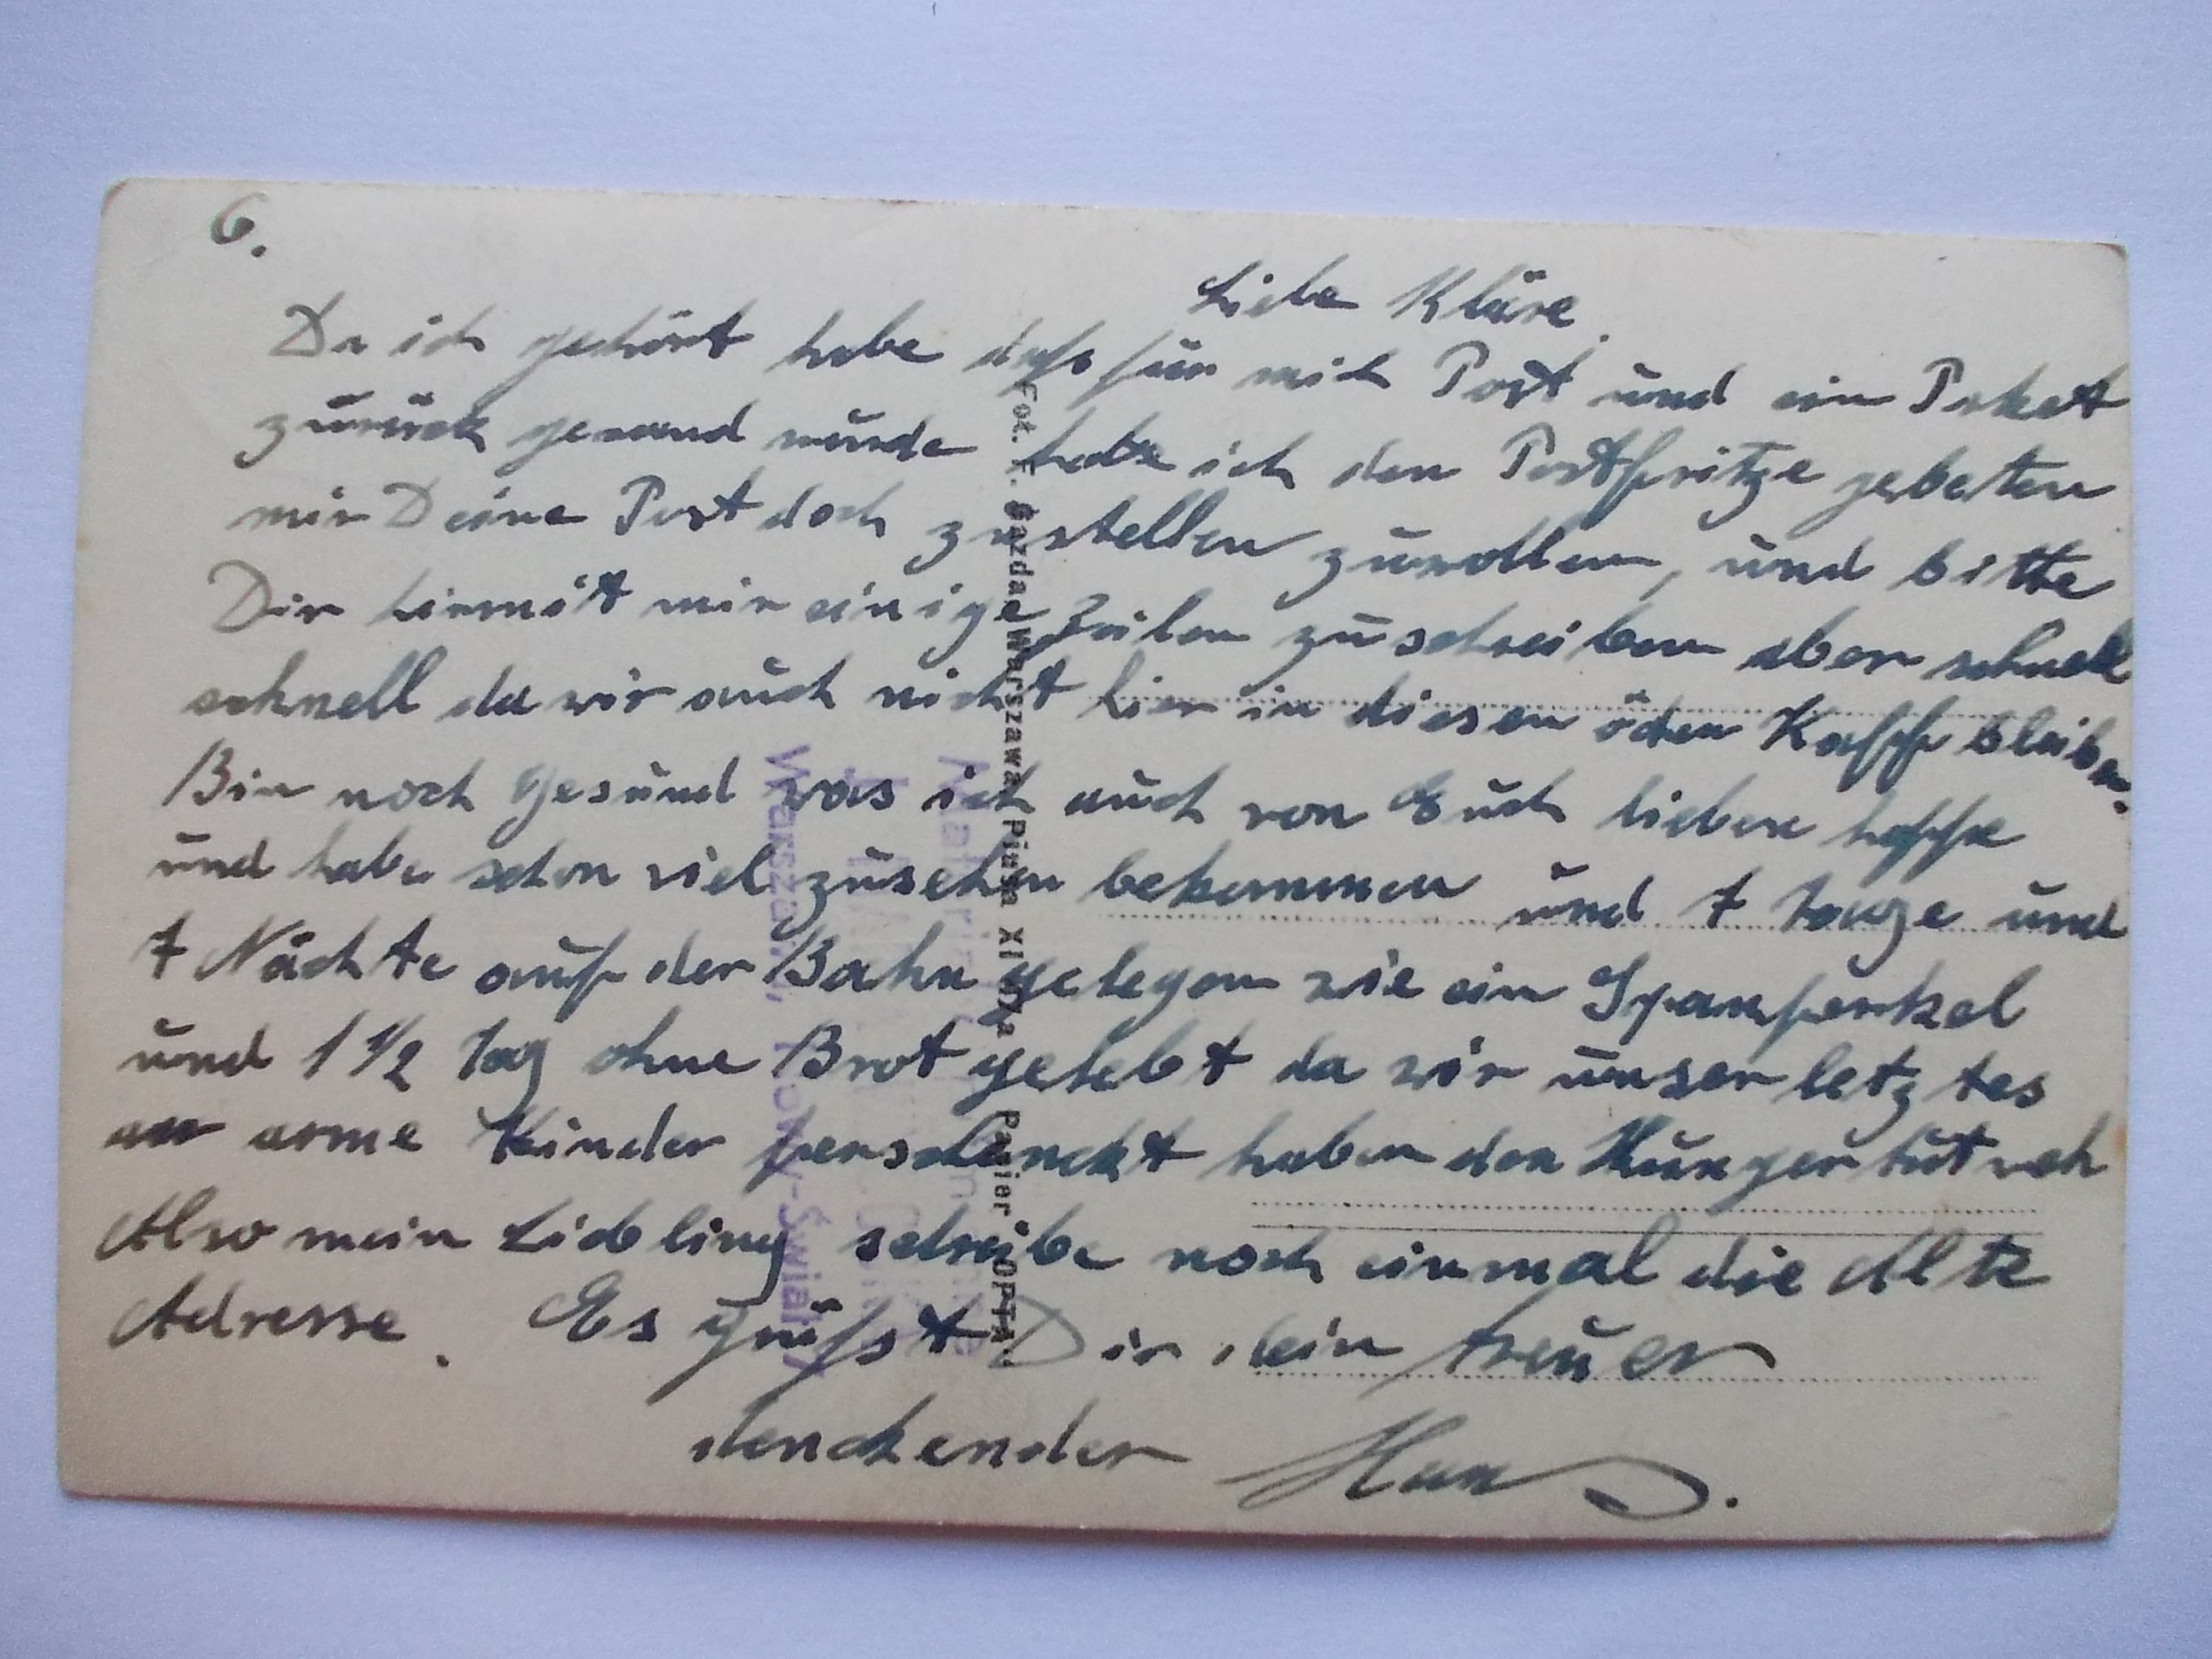 6.
Liebe Kläre.
Da ich gehört habe dass für mich Post und ein Paket
zurück gesand wurde hatte ich den Postfritze gebeten
mir Deine Post doch zustellen zuwollen, und bitte
Dir hirmit mir einige Zeilen zuschreiben aber schnell
schnell da wir auch nicht hier in diesen öden Kaff bleiben.
Bin noch gesund was ich auch von Euch lieben hoffe
und habe schon viel zusehen bekommen und 7 Tage und
7 Nächte auf der Bahn gelegen wie ein Spanferkel
und 1 1/2 Tag ohne Brot gelebt da wir unser letztes
an arme Kinder ferschenckt haben den Hunger tut weh
Also mein Liebling schreibe noch einmal die Alte
Adresse. Es grüsst Dir dein treuer
denckender Hans.
Fot. F. Gazda, Warszawa, Piusa XI Papier "OPTA"
Warszawa, Nowy-Świat